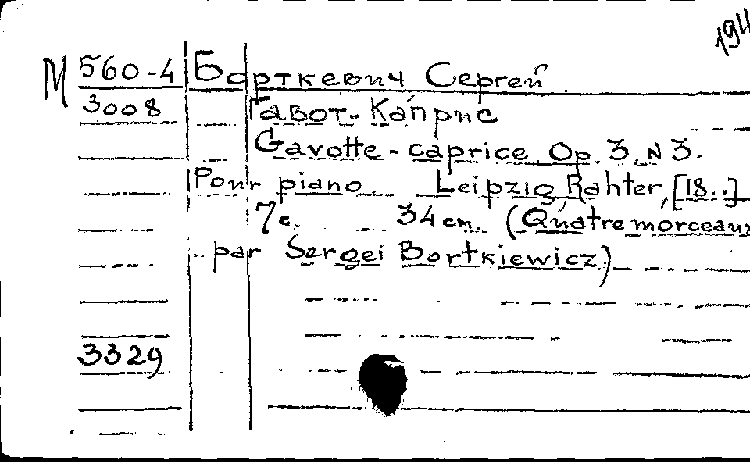 М 560-4 Борткевич Сергей
3008 Гавот-Каприс
Gavotte-caprice Op. 3 N 3.
Pour piano Leipzig, Rahter, [18..]
7 с. 34 cm. (Quatre morceaux
par Sergei Bortkiewicz)
3329